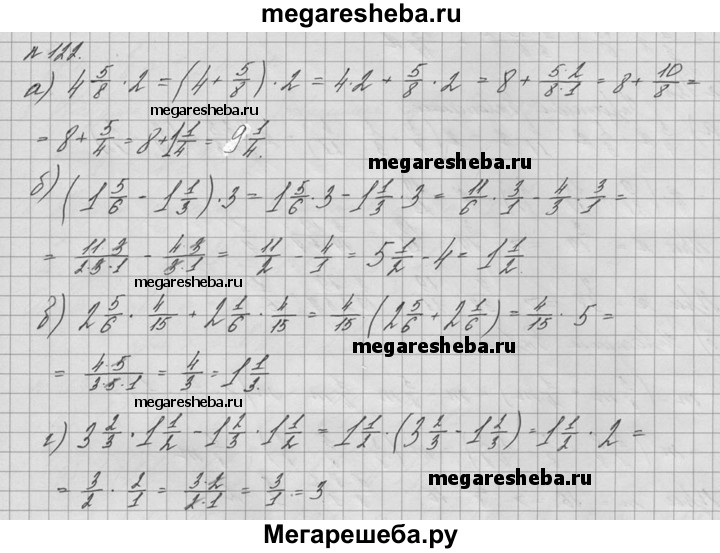 megaresheba.ru
№ 122.
а) 4 5/8 · 2 = (4 + 5/8) · 2 = 4·2 + 5/8 · 2 = 8 + 5·2/8·1 = 8 + 10/8 =
megaresheba.ru
= 8 + 5/4 = 8 + 1 1/4 = 9 1/4.
megaresheba.ru
б) (1 5/6 - 1 1/3) · 3 = 1 5/6 · 3 - 1 1/3 · 3 = 11/6 · 3/1 - 4/3 · 3/1 =
= 11·3/2·3·1 - 4·3/3·1 = 11/2 - 4/1 = 5 1/2 - 4 = 1 1/2.
megaresheba.ru
в) 2 5/6 · 4/15 + 2 1/6 · 4/15 = 4/15 (2 5/6 + 2 1/6) = 4/15 · 5 =
megaresheba.ru
= 4·5/3·5·1 = 4/3 = 1 1/3.
megaresheba.ru
г) 3 2/3 · 1 1/2 - 1 2/3 · 1 1/2 = 1 1/2 · (3 2/3 - 1 2/3) = 1 1/2 · 2 =
megaresheba.ru
= 3/2 · 2/1 = 3·2/2·1 = 3/1 = 3
Мегарешеба.ру